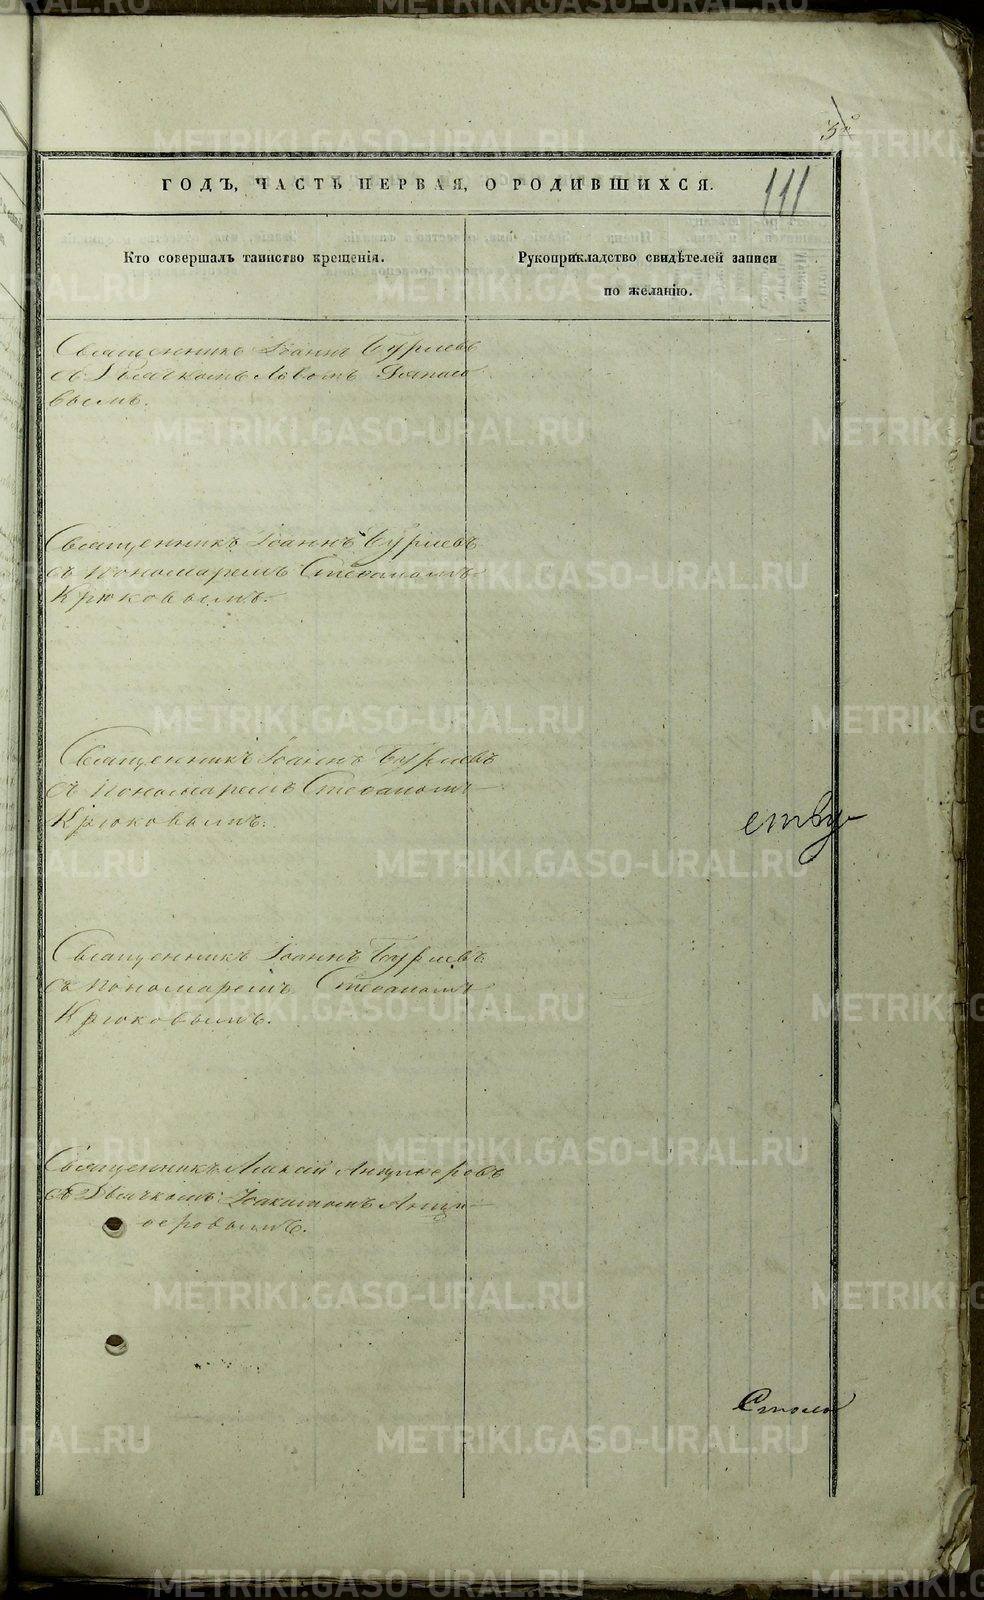 ГОДЪ, ЧАСТЬ ПЕРВАЯ, О РОДИВШИХСЯ.
111
Кто совершалъ таинство крещенія.
Рукоприкладство свидѣтелей записи
по желанію.
Священникъ Іоаннъ Бурлевъ
съ Дьячкомъ Львомъ
вымъ.
Священникъ Іоаннъ Бурлевъ
съ пономаремъ Стефаномъ
Крюковымъ.
Священникъ Іоаннъ Бурлевъ
съ пономаремъ Стефаномъ
Крюковымъ.
Священникъ Іоаннъ Бурлевъ
съ пономаремъ Стефаномъ
Крюковымъ.
Священникъ Алексій Анциферовъ
съ Дьячкомъ Іоакимомъ Анци
феровымъ.
METRIKI.GASO-URAL.RU